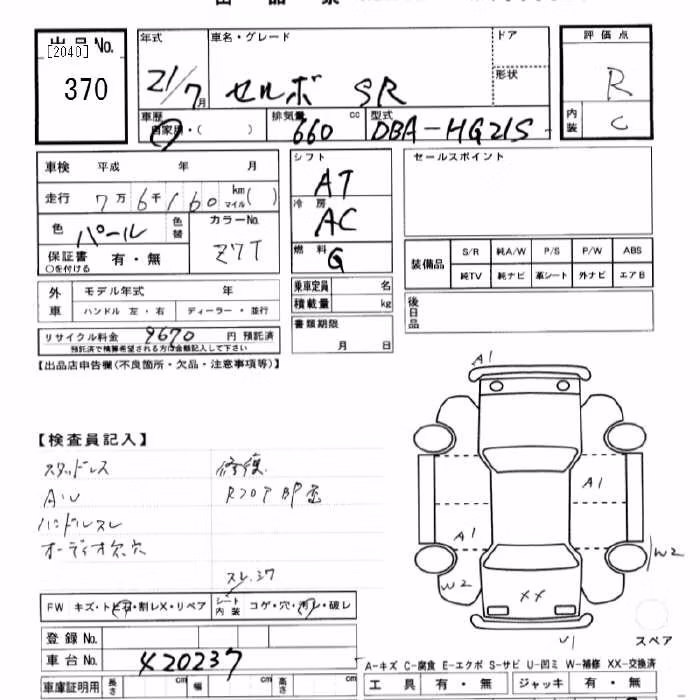 出品票
出品No.
[2040]
370
年式 車名・グレード ドア 評価点
21/7月 セルボ SR 形状 R
車歴 排気量 cc 型式 内装
自家用・( ) 660 DBA-HG21S C
車検 平成 年 月 シフト AT セールスポイント
走行 7万6千160 km マイル( ) 冷房 AC
色 パール 色替 カラーNo. Z7T 燃料 G
保証書 有・無
○を付ける
装備品 S/R 純A/W P/S P/W ABS
純TV 純ナビ 革シート 外ナビ エアB
外車 モデル年式 年 乗車定員 名 後日品
ハンドル 左・右 ディーラー・並行 積載量 kg
リサイクル料金 9670 円 預託済 書類期限
預託済で精算希望される方は金額記入して下さい 月 日
【出品店申告欄(不良箇所・欠品・注意事項等)】
A1
【検査員記入】
スタッドレス 修復
A・U RフロアBP歪
ハンドルスレ
オーディオ欠穴
スレ.37
A1
A1
W2
W2
XX
U1
スペア
FW キズ・トビ石・割レX・リペア シート内装 コゲ・穴・汚レ・破レ
登録No.
車台No. X20237
A-キズ C-腐食 E-エクボ S-サビ U-凹ミ W-補修 XX-交換済
車庫証明用 長さ cm 幅 cm 高さ cm 工具 有・無 ジャッキ 有・無